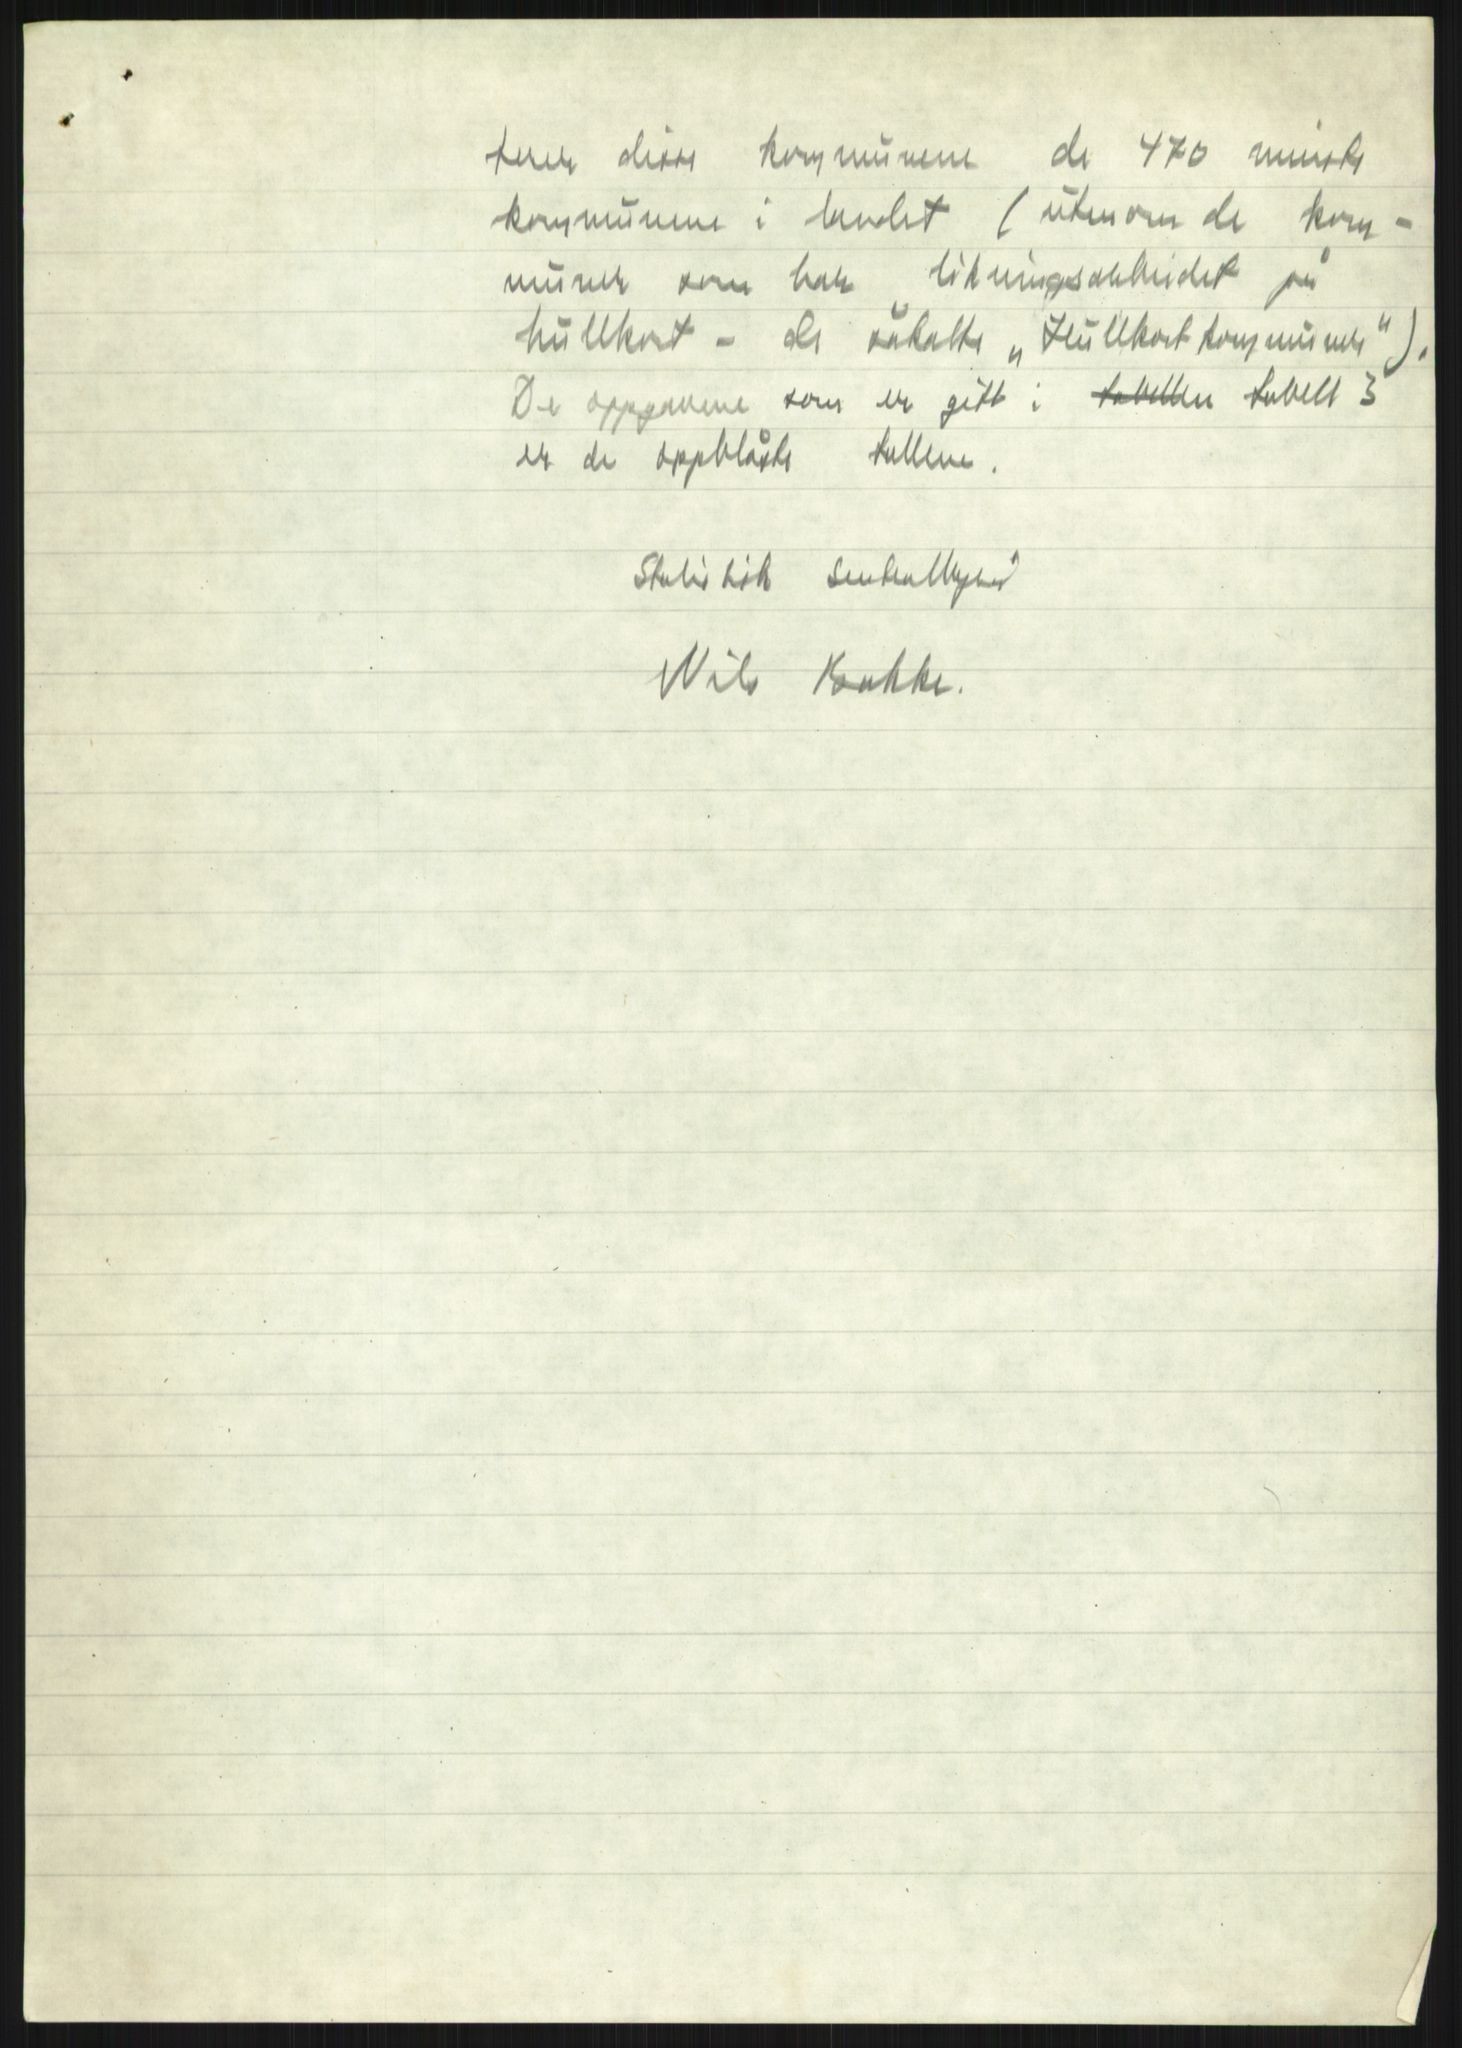 terer disse kommunene de 470 minste
kommunene i landet (utenom de kom-
muner som har likningsarbeidet på
hullkort - de såkalte „Hullkortkommuner").
De oppgavene som er gitt i tabellen tabell 3
er de oppblåste tallene.
Statistisk Sentralbyrå
Nils Bakke.